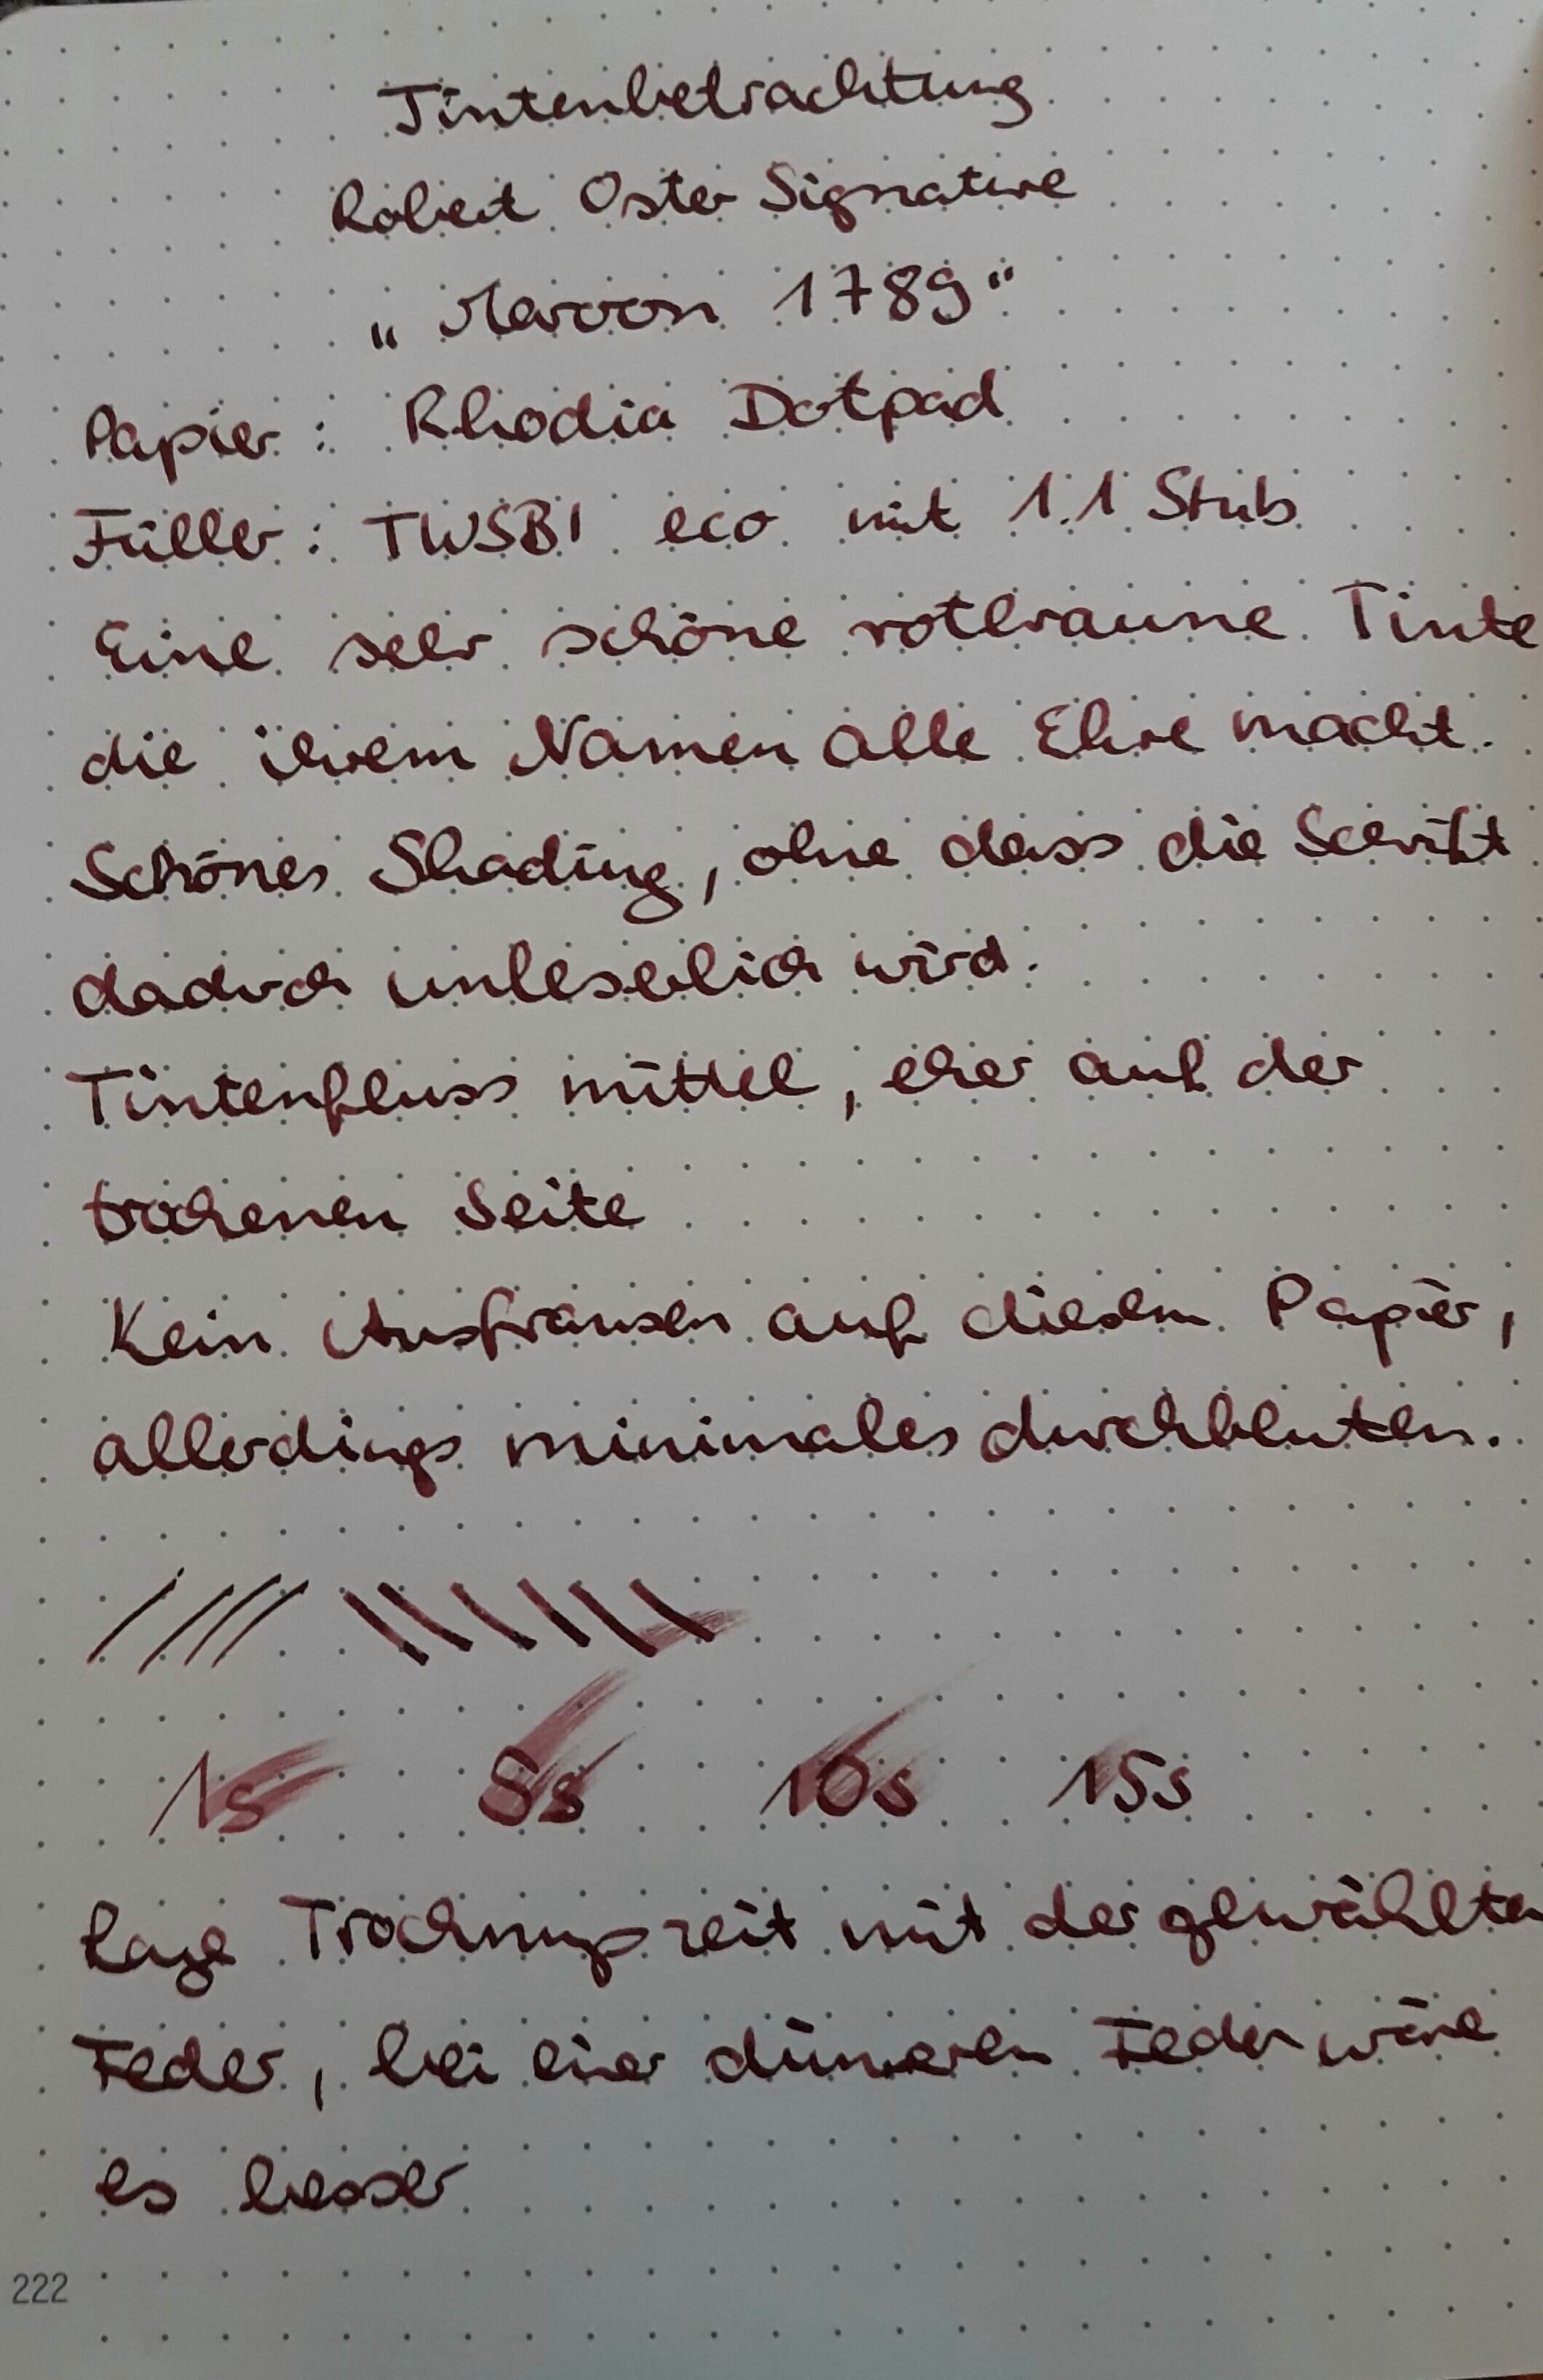 Tintenbetrachtung
Robert Oster Signature
„Maroon 1789“
Papier: Rhodia Dotpad
Füller: TWSBI eco mit 1.1 Stub
Eine sehr schöne rotbraune Tinte
die ihrem Namen alle Ehre macht.
Schönes Shading, ohne dass die Schrift
dadurch unleserlich wird.
Tintenfluss mittel, eher auf der
trockenen Seite
Kein Ausfransen auf diesem Papier,
allerdings minimales durchbluten.
1s 5s 10s 15s
lange Trocknungszeit mit der gewählten
Feder, bei einer dünneren Feder wäre
es besser
222